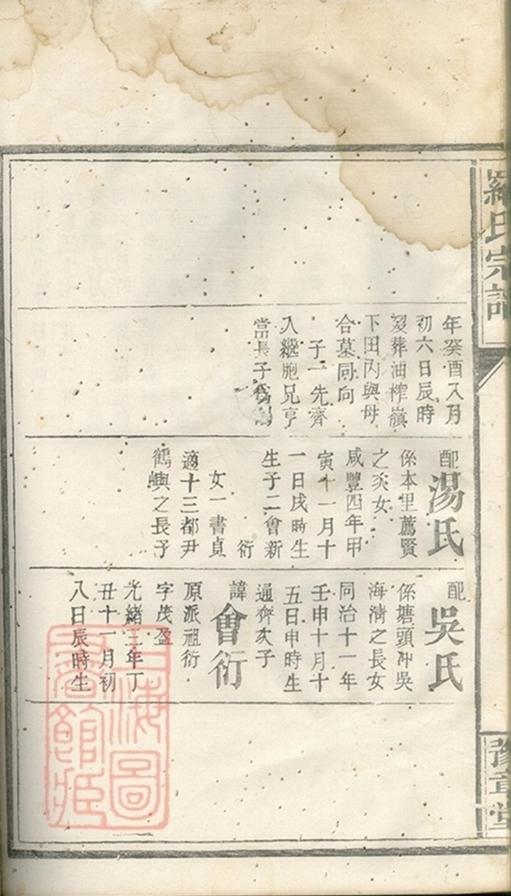 羅氏宗譜
年癸酉八月
初六日辰時
歿葬油榨嶺
下田內與母
合墓同向
子一先齊
入繼胞兄亨
當長子
配湯氏
係本里薦賢
之次女
咸豐四年甲
寅十一月十
一日戌時生
生子二會新
衍
女一書貞
適十三都尹
鶴嶼之長子
配吳氏
係塘頭冲吳
海清之長女
同治十一年
壬申十月十
五日申時生
通齊次子
諱會衍
原派祖衍
字茂盈
光緒三年丁
丑十一月初
八日辰時生
豫章堂
上海圖
書館藏